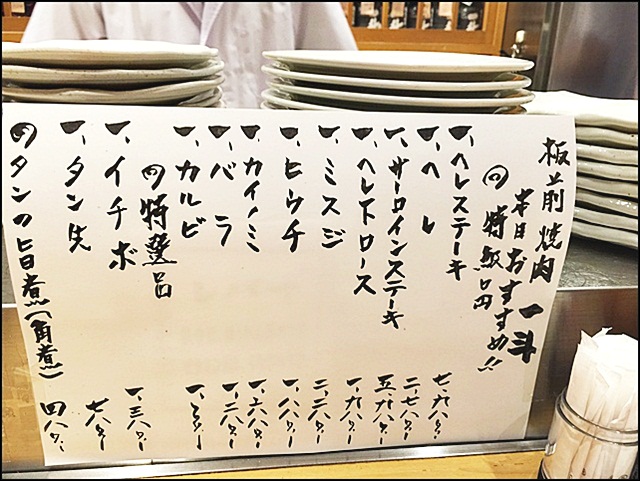 板前焼肉 一斗
本日おすすめ!!
◎ 特級品
一、ヘレステーキ 七、九八〇ー
一、ヘレ 二、七八〇ー
一、サーロインステーキ 五、九八〇ー
一、ヘレ下ロース 一、九八〇ー
一、ミスジ 二、二八〇ー
一、ヒウチ 一、八八〇ー
一、カイノミ 一、六八〇ー
一、バラ 一、二八〇ー
一、カルビ
◎ 特選品
一、イチボ 一、三八〇ー
一、タン先 七八〇ー
◎ タンの旨煮(角煮) 四八〇ー